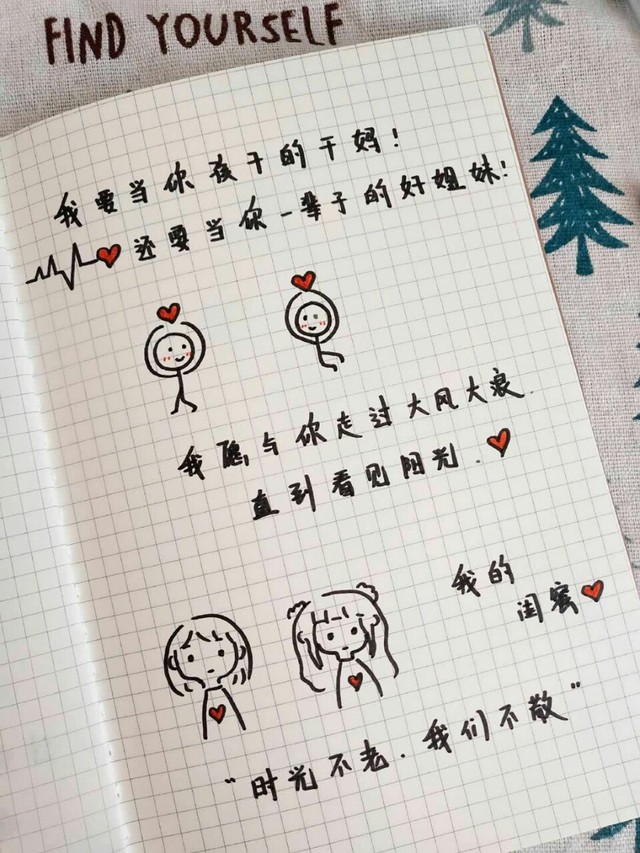 FIND YOURSELF
我要当你孩子的干妈!
还要当你一辈子的好姐妹!
我愿与你走过大风大浪.
直到看见阳光.
我的
闺蜜
“时光不老.我们不散”